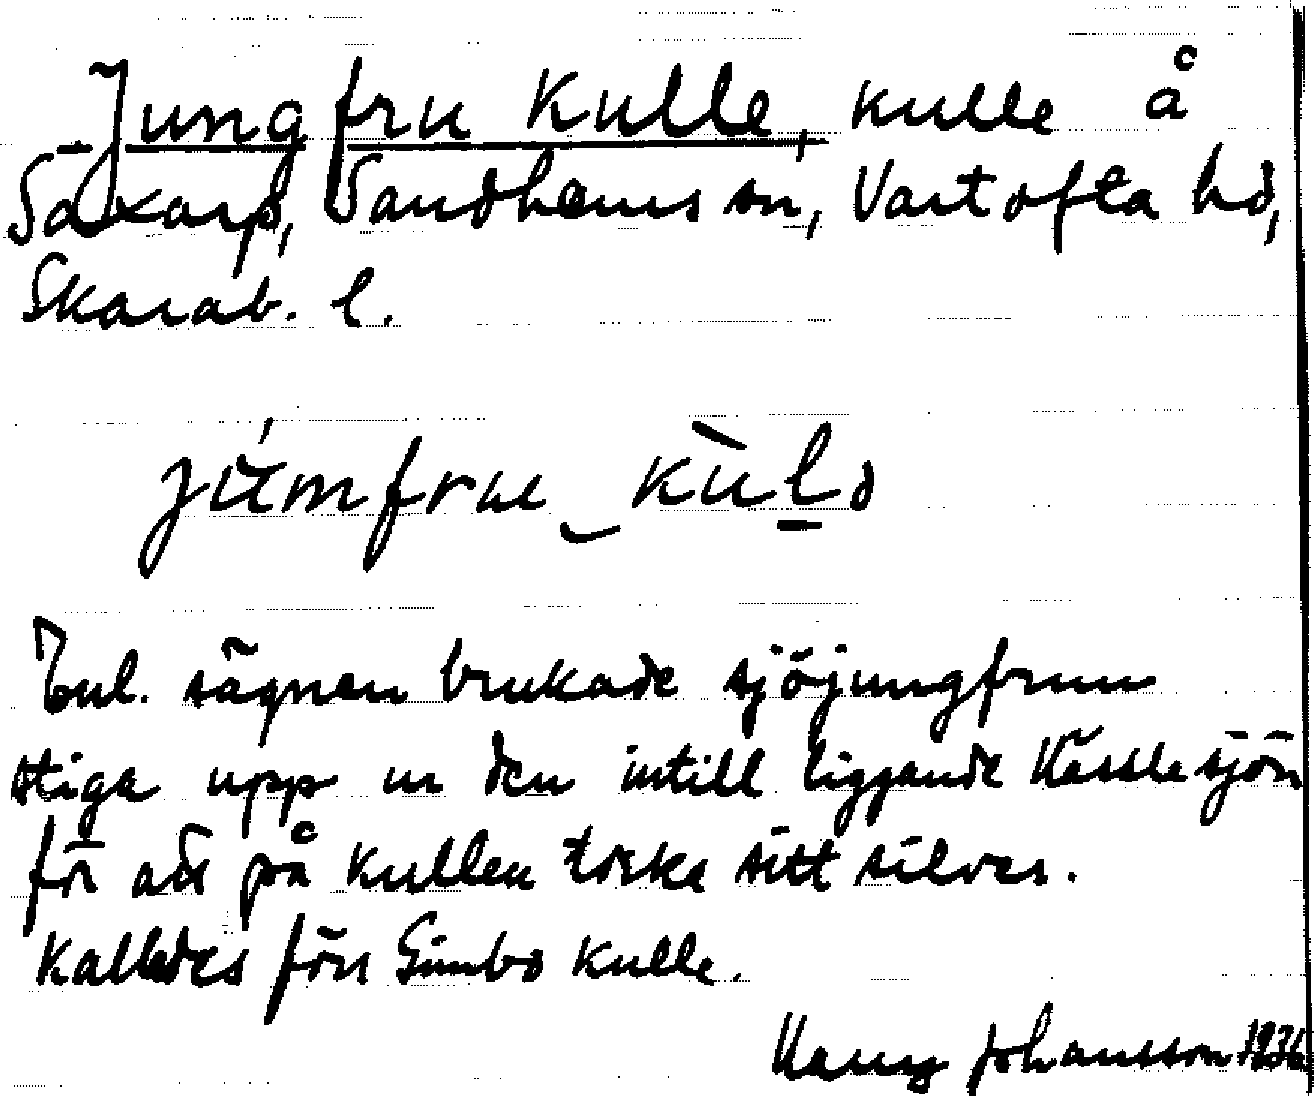 Jungfru kulle, kulle å
Säxarp, Sandhems sn, Vartofta hd,
Skarab. l.
júmfru kùlə
Enl. sägnen brukade sjöjungfrun
stiga upp ur den intill liggande Kasslesjön
för att på kullen torka sitt silver.
Kallades förr Simbo kulle.
Johansson 1936